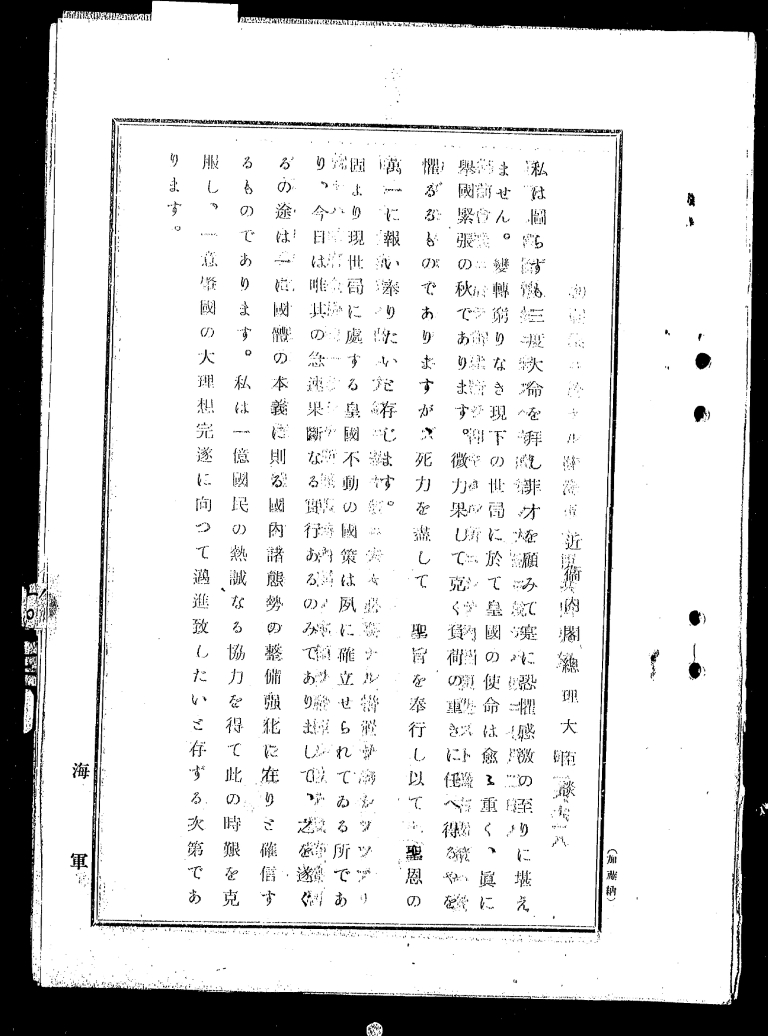 近衞內閣總理大臣談
私は圖らずも三度大命を拜し非才を顧みて寔に恐懼感激の至りに堪え
ません。變轉窮りなき現下の世局に於て皇國の使命は愈々重く、眞に
擧國緊張の秋であります。微力果して克く負荷の重きに任へ得るやを
懼るゝものでありますが、死力を盡して 聖旨を奉行し以て 聖恩の
萬一に報い奉りたいと存じます。
固より現世局に處する皇國不動の國策は夙に確立せられてゐる所であ
り、今日は唯其の急速果斷なる實行あるのみでありまして、之を遂ぐ
るの途は一に國體の本義に則る國內諸態勢の整備强化に在りと確信す
るものであります。私は一億國民の熱誠なる協力を得て此の時艱を克
服し、一意肇國の大理想完遂に向つて邁進致したいと存ずる次第であ
ります。
海軍
(加藤納)